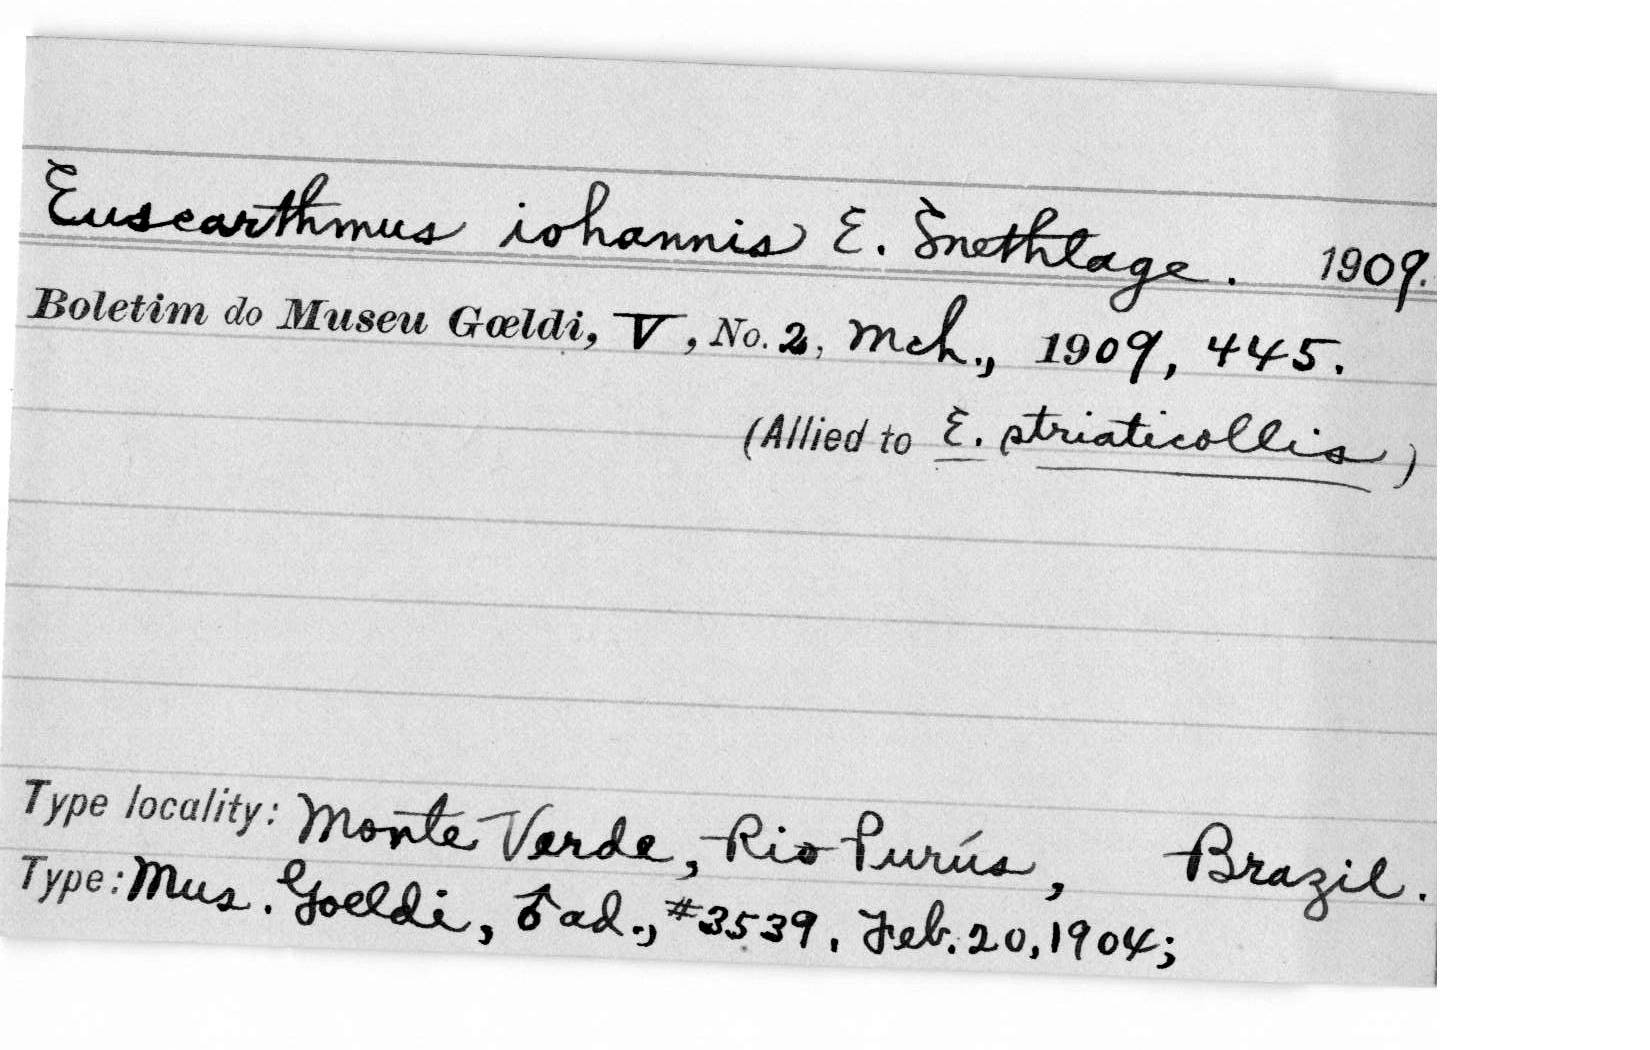 Euscarthmus iohannis E. Snethlage. 1909.
Boletim do Museu Gœldi, V, No. 2, Mch., 1909, 445.
(Allied to E. striaticollis)
Type locality: Monte Verde, Rio Purús, Brazil.
Type: Mus. Goeldi, ♂ ad., #3539, Feb. 20, 1904;